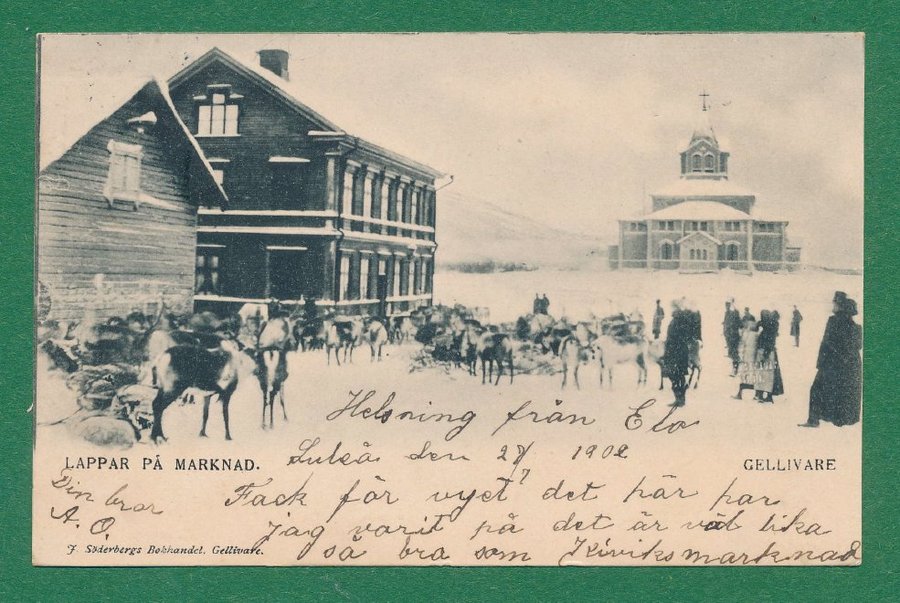 Helsning från Elo
LAPPAR PÅ MARKNAD.
Luleå den 27/7 1902
GELLIVARE
Din bror
A. O.
Tack för vyet det här har
jag varit på det är väl lika
så bra som Kiviksmarknad
J. Söderbergs Bokhandel. Gellivare.